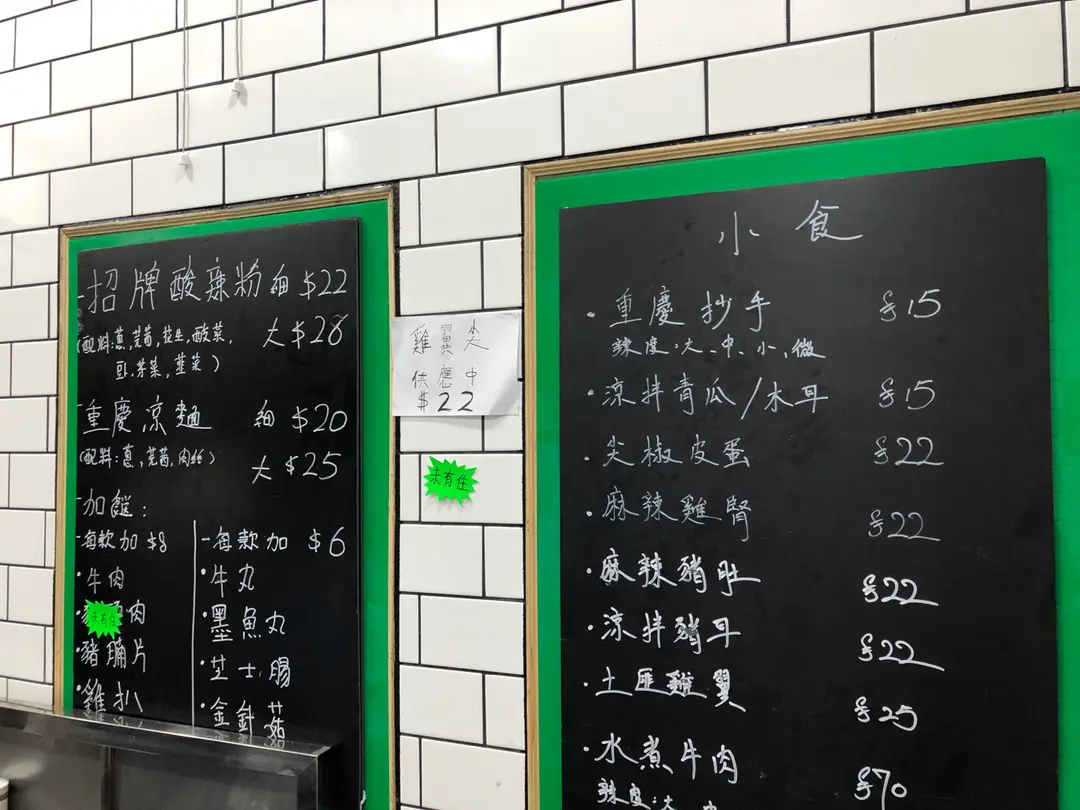 招牌酸辣粉 細 $22
(配料:蔥,芫茜,花生,酸菜, 大 $28
豆,芽菜,韮菜)
重慶涼麵 細 $20
(配料:蔥,芫茜,肉絲) 大 $25
加餸:
-每款加 $8
·牛肉
肉
·豬腩片
·雞扒
-每款加 $6
·牛丸
·墨魚丸
·芝士腸
·金針菇
雞翼尖
供應中
$22
未有住
未有住
小食
·重慶抄手 $15
辣度:大、中、小、微
·涼拌青瓜/木耳 $15
·尖椒皮蛋 $22
·麻辣雞腎 $22
·麻辣豬肚 $22
·涼拌豬耳 $22
·土匪雞翼 $25
·水煮牛肉 $70
辣度:大、中